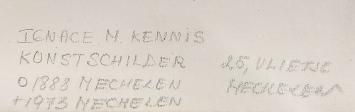 IGNACE M. KENNIS
KONSTSCHILDER 25, VLIETJE
O 1888 MECHELEN MECHELEN
+ 1973 MECHELEN